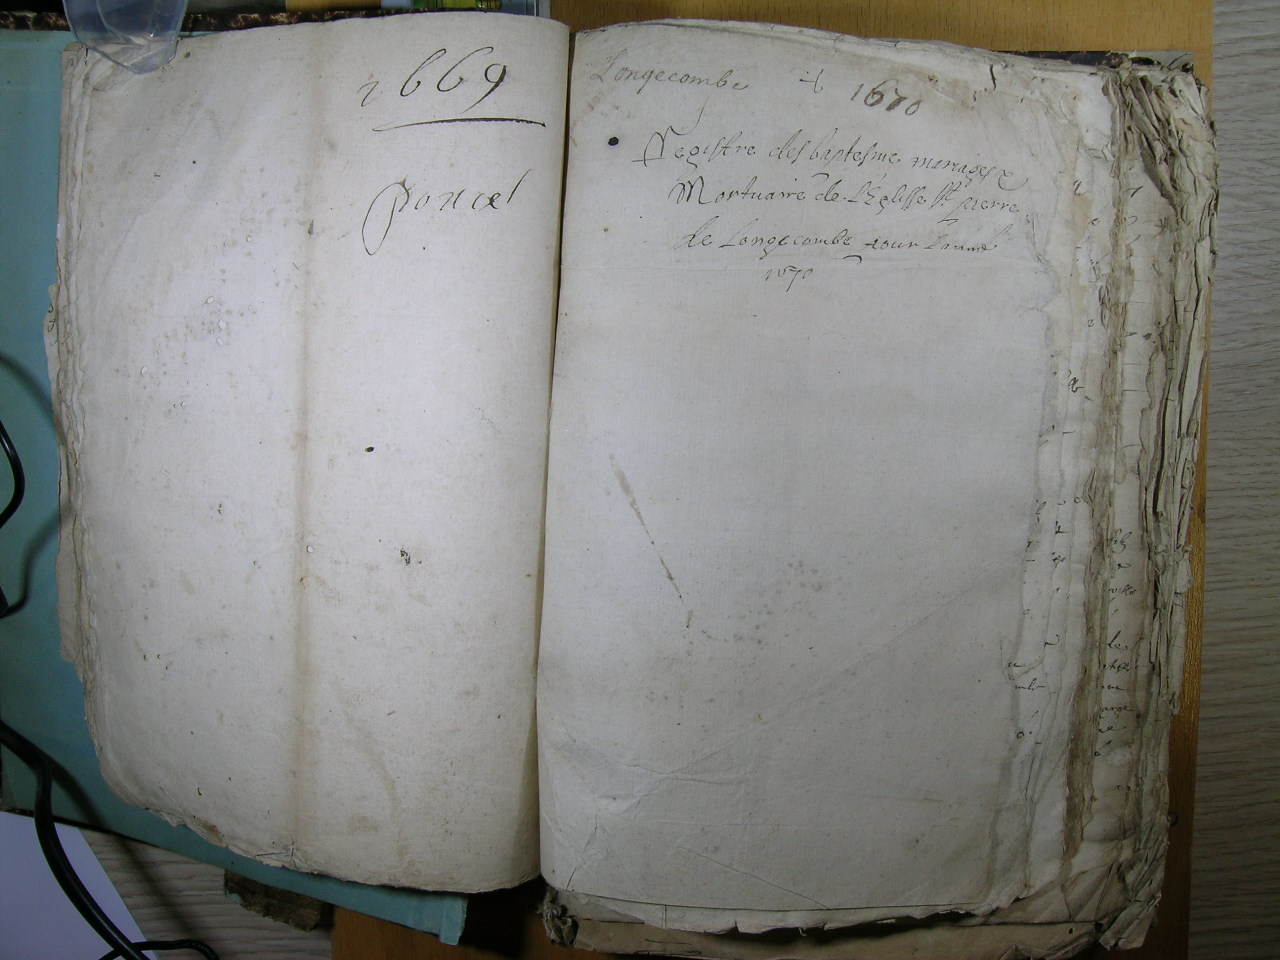 1669
poncet
Longecombe 1670
Registre des baptesme meriages &
Mortuaire de L'Eglisse St pierre
de Longecombe pour Lanné
1670